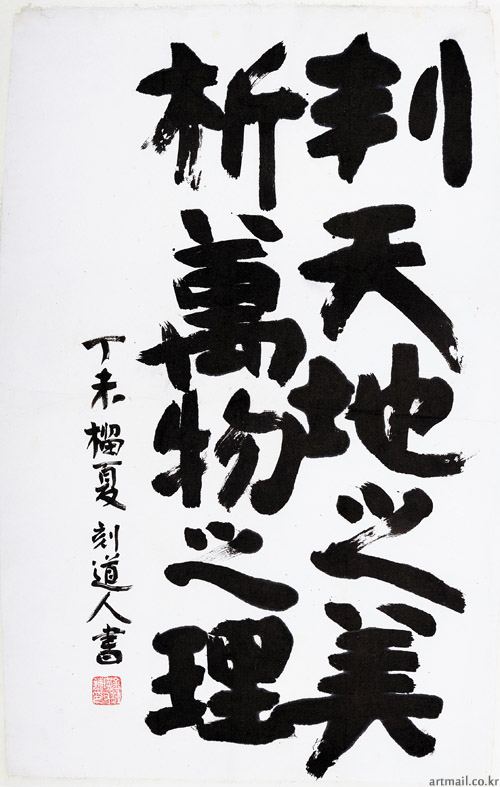 判天地之美
析萬物之理
丁未榴夏 刻道人書
artmail.co.kr